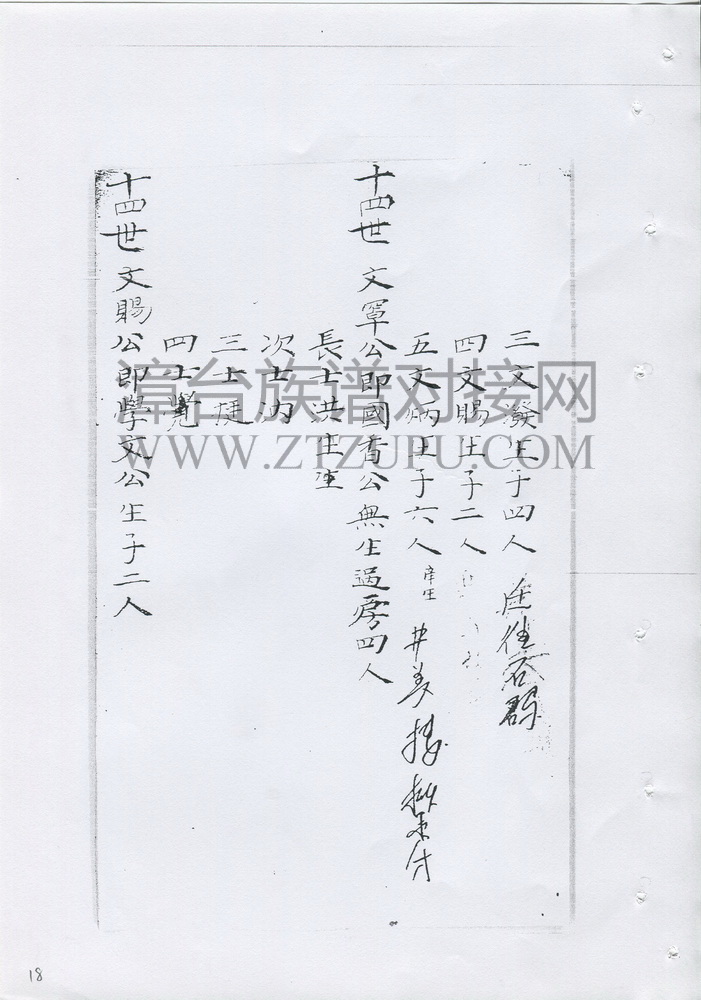 三文發生子四人
四文賜生子二人
五文炳生子六人 庠生
十四世 文軍公即國香公無生過房四人
長士洪庠生
次士
三士
四士覺
十四世文賜公即學文公生子二人
漳台族谱对接网
WWW.ZTZUPU.COM
18